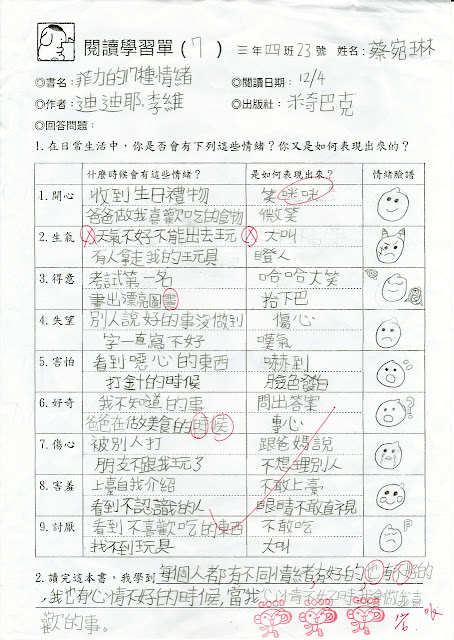 閱讀學習單(7) 三年四班23號 姓名:蔡宛琳
◎書名:菲力的17種情緒 ◎閱讀日期:12/4
◎作者:迪迪耶.李維 ◎出版社:米奇巴克
◎回答問題:
1.在日常生活中,你是否會有下列這些情緒?你又是如何表現出來的?
什麼時候會有這些情緒? 是如何表現出來? 情緒臉譜
1.開心 收到生日禮物 笑咪咪
爸爸做我喜歡吃的食物 微笑
2.生氣 天氣不好不能出去玩 大叫
有人拿走我的玩具 瞪人
3.得意 考試第一名 哈哈大笑
畫出漂亮圖畫 抬下巴
4.失望 別人說好的事沒做到 傷心
字一直寫不好 嘆氣
5.害怕 看到噁心的東西 嚇到
打針的時候 臉色發白
6.好奇 我不知道的事 問出答案
爸爸在做美食的時候 專心
7.傷心 被別人打 跟爸媽說
朋友不跟我玩了 不想理別人
8.害羞 上臺自我介紹 不敢上臺
看到不認識的人 眼睛不敢直視
9.討厭 看到不喜歡吃的東西 不敢吃
找不到玩具 大叫
2.讀完這本書,我學到每個人都有不同情緒,有好的也有不好的
,我也有心情不好的時候,當我心情不好時我會做我喜
歡的事。